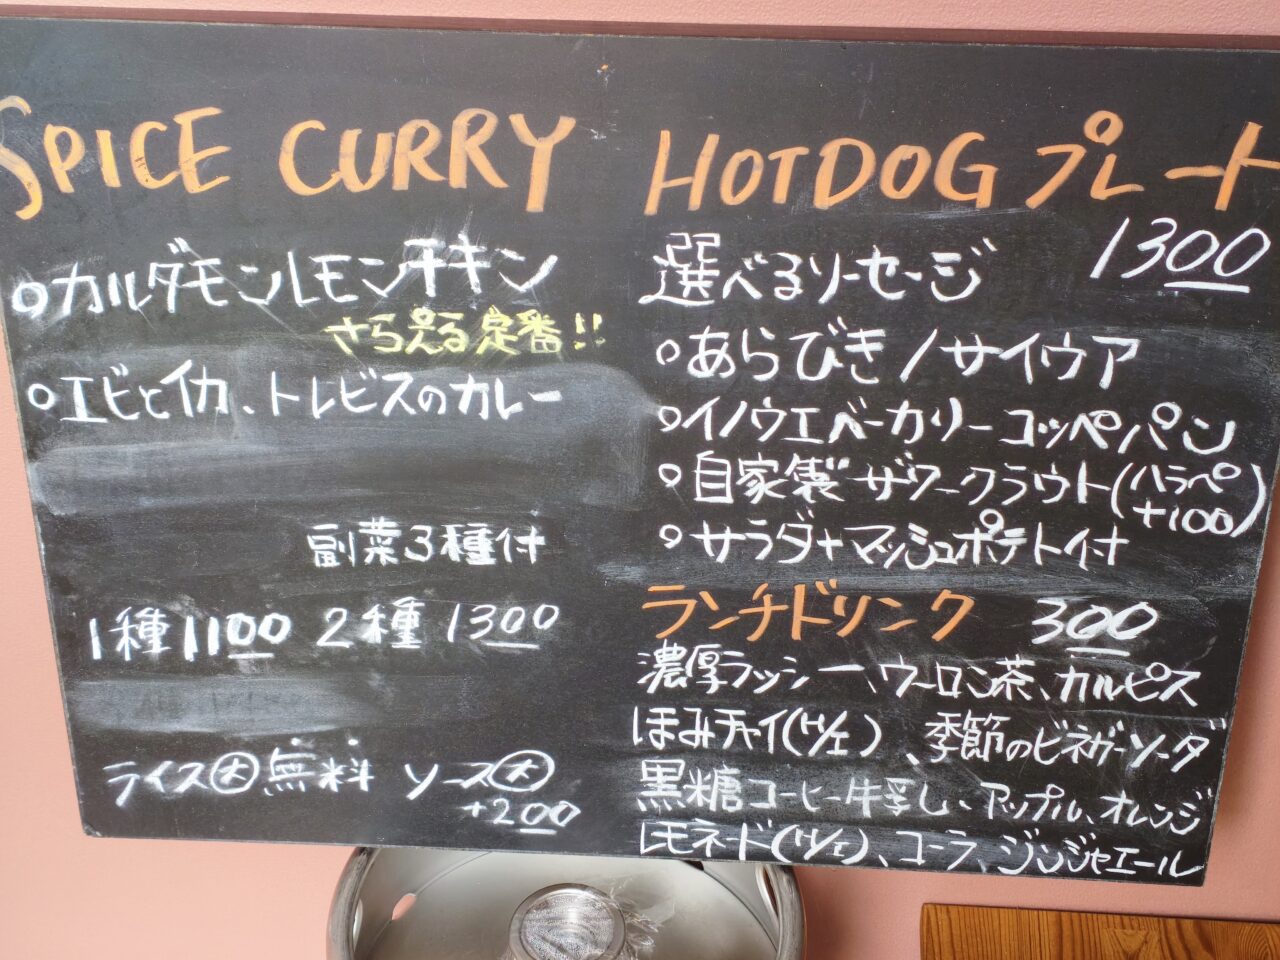 SPICE CURRY
○カルダモンレモンチキン
さらえる定番!!
○エビとイカ、トレビスのカレー
副菜3種付
1種1100 2種 1300
ライス大無料 ソース大
+200
HOTDOGプレート
1300
選べるソーセージ
○あらびき/サイウア
○イノウエベーカリーコッペパン
○自家製ザワークラウト(ハラペ
+100)
○サラダ+マッシュポテト付
ランチドリンク 300
濃厚ラッシー、ウーロン茶、カルピス
ほみチャイ(H/I)、季節のビネガーソーダ
黒糖コーヒー牛乳、アップル、オレンジ
レモネード(H/I)、コーラ、ジンジャエール